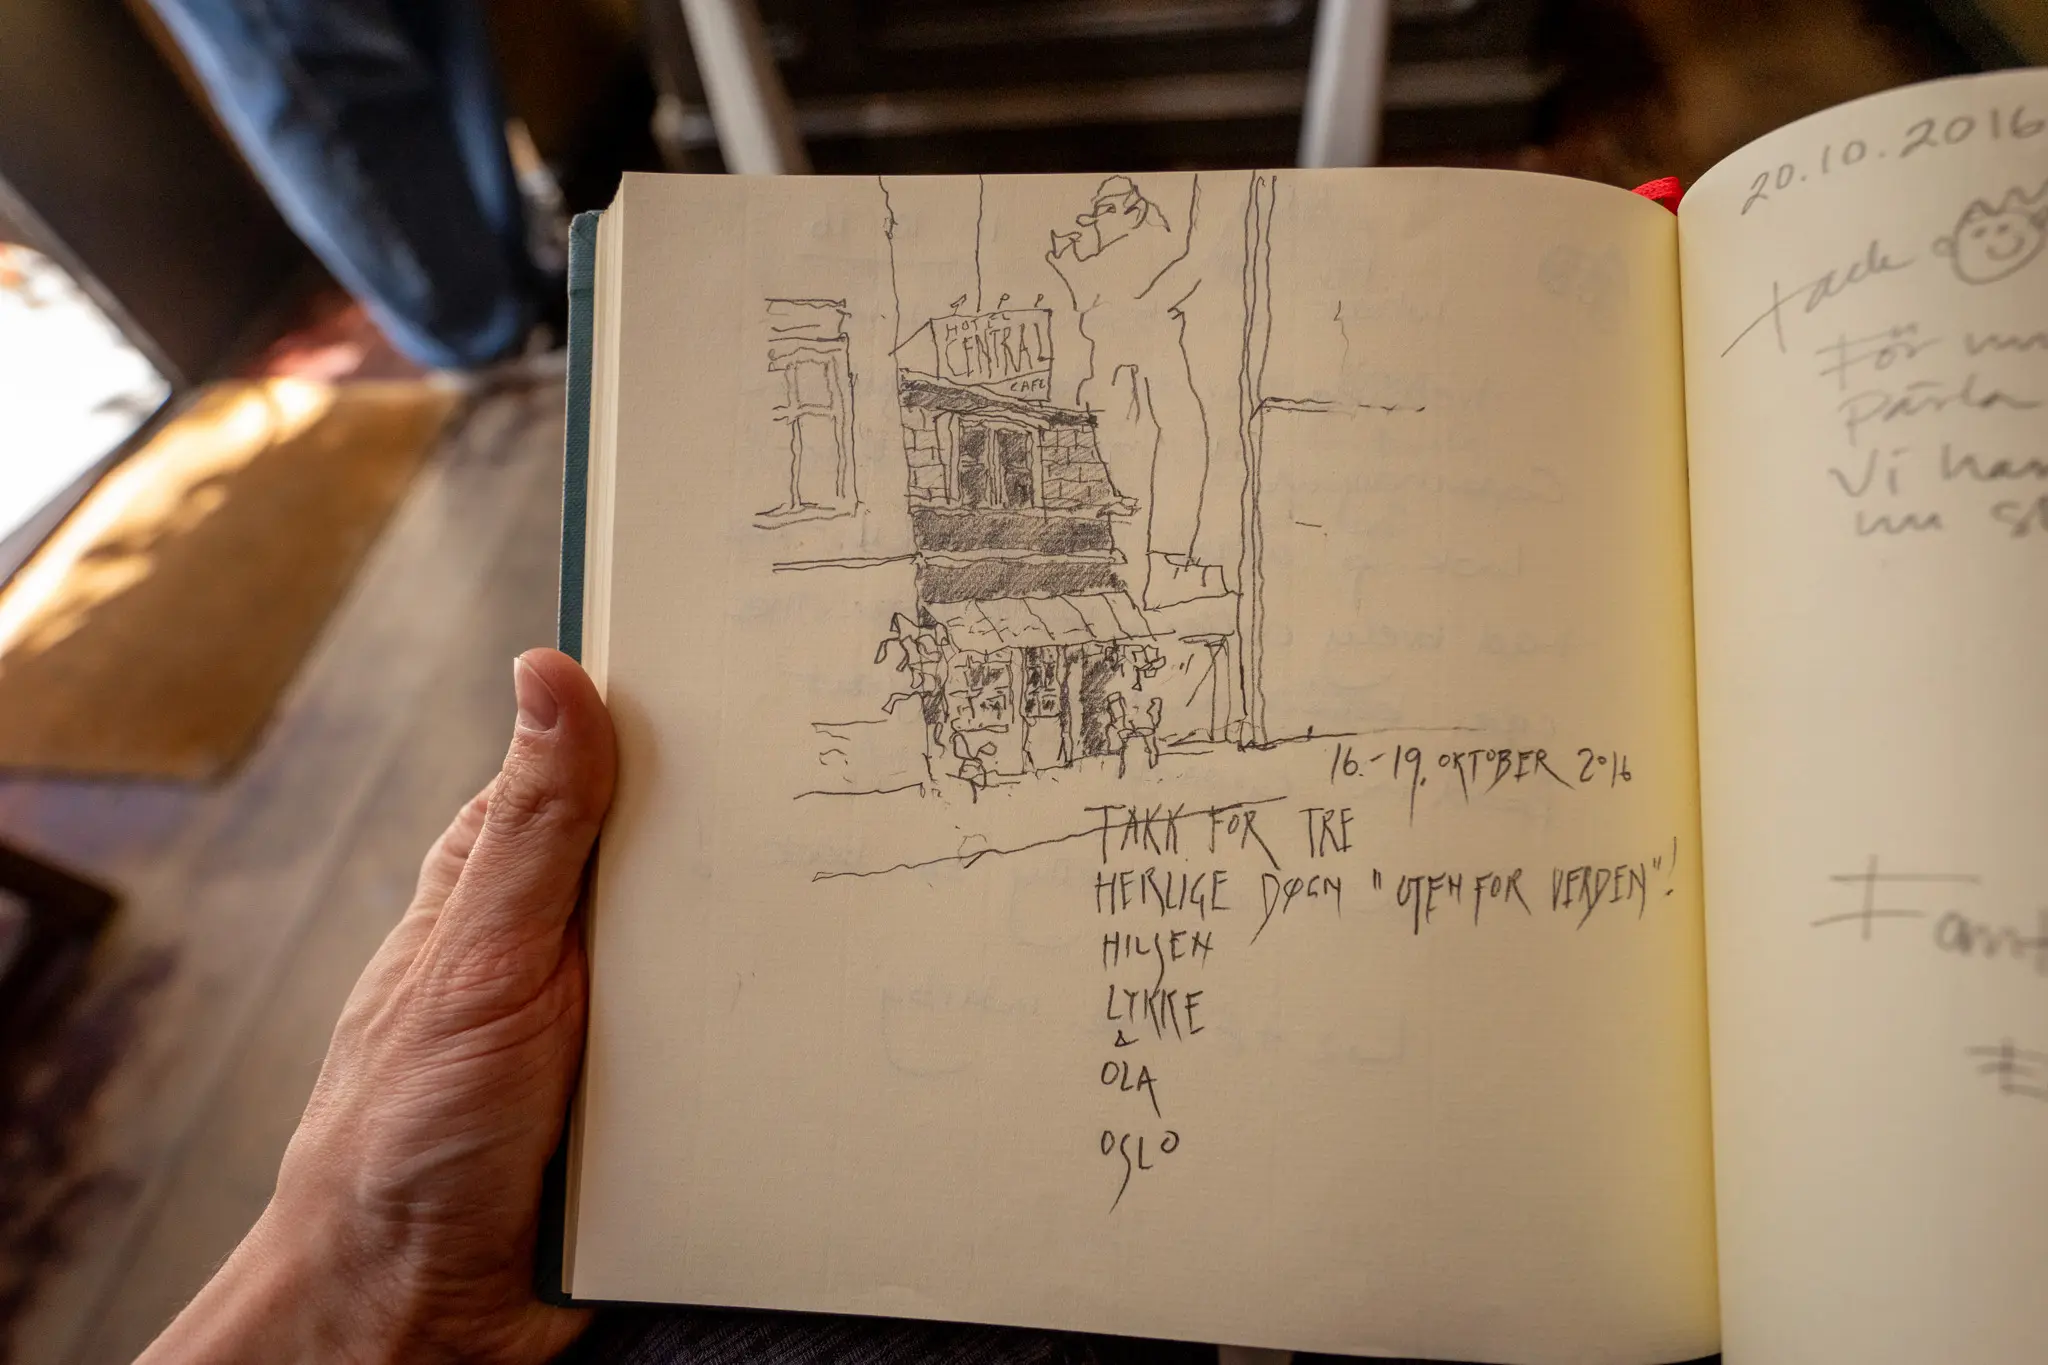 HOTEL
CENTRAL
CAFE
16.-19. OKTOBER 2016
TAKK FOR TRE
HERLIGE DØGN "UTENFOR VERDEN"!
HILSEN
LYKKE
&
OLA
OSLO
20.10.2016
Tack
För
Pärla
Vi